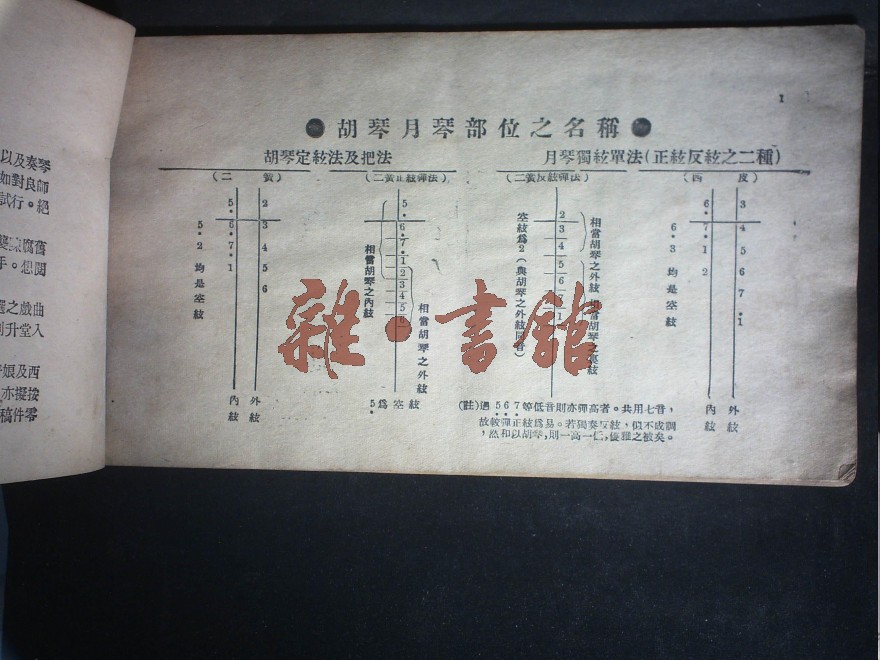 1
●胡琴月琴部位之名稱●
胡琴定絃法及把法
月琴獨絃單法(正絃反絃之二種)
(二黃)
5 2
6 3
7 4
1 5
6
5 2 均是空絃
內絃
外絃
(二黃正絃彈法)
5
6
7
1
2
3
4
5
6
相當胡琴之內絃
相當胡琴之外絃
5 爲空絃
(二黃反絃彈法)
2
3
4
5
6
7
1
空絃爲2(與胡琴之外絃同音)
相當胡琴之外絃
相當胡琴之裏絃
(西皮)
6 3
7 4
1 5
2 6
7
1
6 3 均是空絃
內絃
外絃
(註)遇 5 6 7 等低音則亦彈高者。共用七音，
故較彈正絃爲易。若獨奏反絃，似不成調
，然和以胡琴，則一高一低，優雅之被矣。
以及奏琴
如對良師
試行。絕
腐舊
手。想閱
選之戲曲
升堂入
娘及西
亦擬按
稿件零
雜·書館